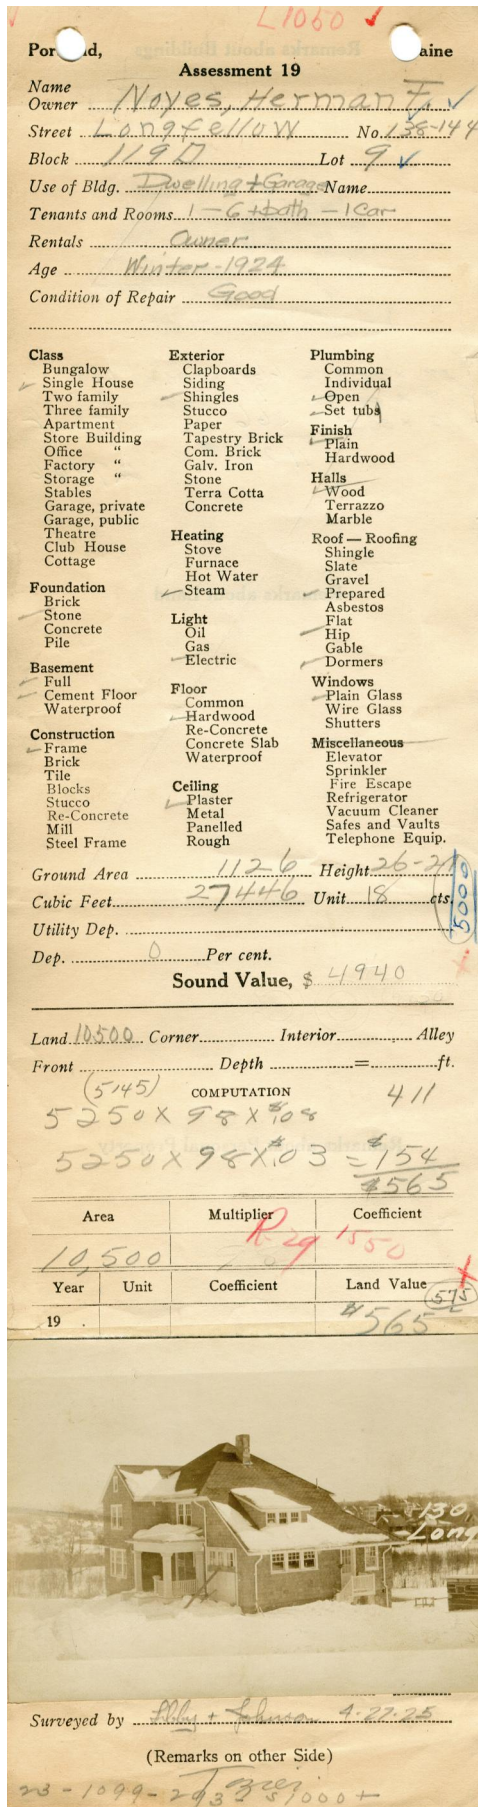 L1050
Por nd, aine
Assessment 19
Name
Owner Noyes, Herman F.
Street Longfellow No. 138-144
Block 119D Lot 9
Use of Bldg. Dwelling + Garage Name
Tenants and Rooms 1 - 6 + bath - 1 car
Rentals Owner
Age Winter - 1924
Condition of Repair Good
Class
Bungalow
Single House
Two family
Three family
Apartment
Store Building
Office "
Factory "
Storage "
Stables
Garage, private
Garage, public
Theatre
Club House
Cottage
Foundation
Brick
Stone
Concrete
Pile
Basement
Full
Cement Floor
Waterproof
Construction
Frame
Brick
Tile
Blocks
Stucco
Re-Concrete
Mill
Steel Frame
Exterior
Clapboards
Siding
Shingles
Stucco
Paper
Tapestry Brick
Com. Brick
Galv. Iron
Stone
Terra Cotta
Concrete
Heating
Stove
Furnace
Hot Water
Steam
Light
Oil
Gas
Electric
Floor
Common
Hardwood
Re-Concrete
Concrete Slab
Waterproof
Ceiling
Plaster
Metal
Panelled
Rough
Plumbing
Common
Individual
Open
Set tubs
Finish
Plain
Hardwood
Halls
Wood
Terrazzo
Marble
Roof — Roofing
Shingle
Slate
Gravel
Prepared
Asbestos
Flat
Hip
Gable
Dormers
Windows
Plain Glass
Wire Glass
Shutters
Miscellaneous
Elevator
Sprinkler
Fire Escape
Refrigerator
Vacuum Cleaner
Safes and Vaults
Telephone Equip.
Ground Area 1126 Height
Cubic Feet 27446 Unit 18 cts.
5000
Utility Dep.
Dep. 0 Per cent.
Sound Value, $ 4940
Land 10500 Corner Interior Alley
Front Depth = ft.
(5145) COMPUTATION 411
5250 X 98 X $.08
5250 X 98 X $.03 = $154
$565
Area Multiplier Coefficient
R-29 1550
10,500
Year Unit Coefficient Land Value
575
19 . $565
130
Long
Surveyed by Libby + Johnson 4-27-25
(Remarks on other Side)
23 - 1099 - 293 - $1000+